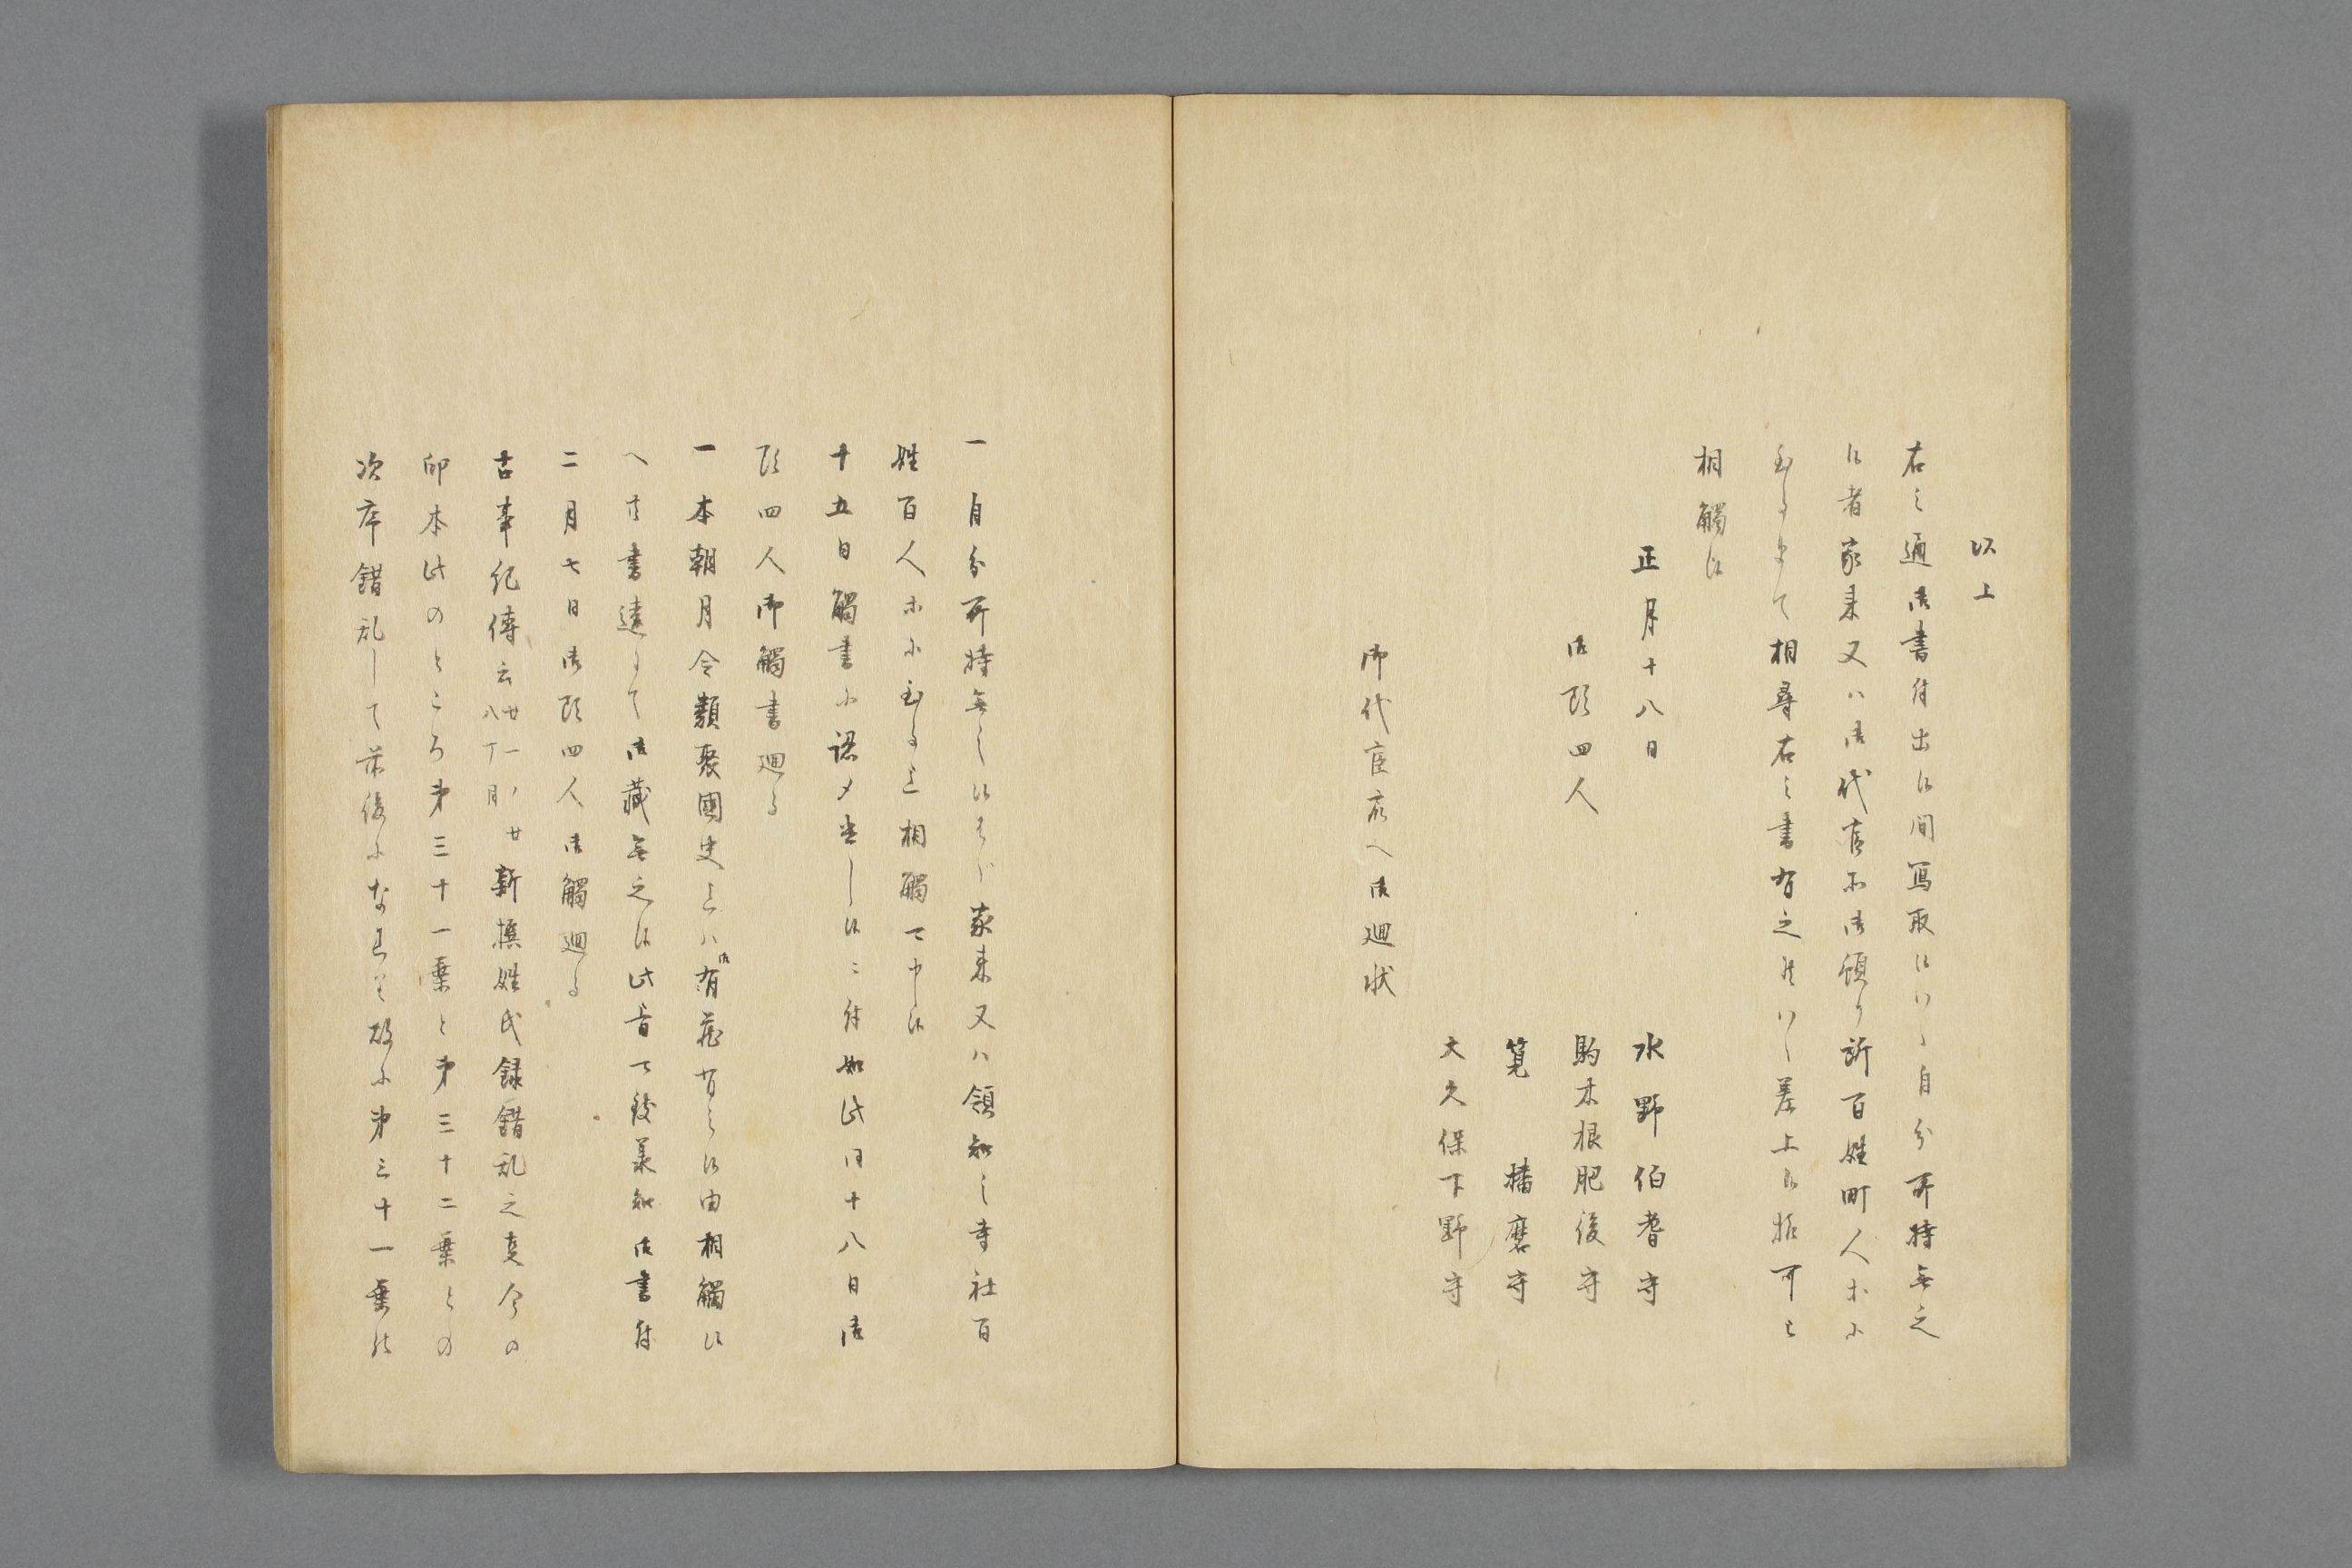 以上
右之通御書付出候間写取候ハヽ自分所持無之
候者家来又ハ御代官所御預り所百姓町人ホニ
至るまて相尋右之書有之候ハヽ差上候様可被
相觸候
正月十八日
水野伯耆守
御頭四人
駒木根肥後守
筧播磨守
大久保下野守
御代官衆へ御廻状
一自分所持無之候はゝ家来又ハ領知之寺社百
姓百人ホニ至る迄相觸可申候
十五日觸書ニ認メ出し候ニ付如此同十八日御
頭四人御觸書廻る
一本朝月令類聚國史とハ御有 候由相觸候
へ共書違にて御蔵無之候此旨可致承知御書付
二月七日御頭四人御觸廻る
古事紀傳云廿一ノ廿八丁 新撰姓氏録錯乱之事今の
印本此のところ第三十一葉と第三十二葉との
次序錯乱して前後になれり故に第三十一葉の